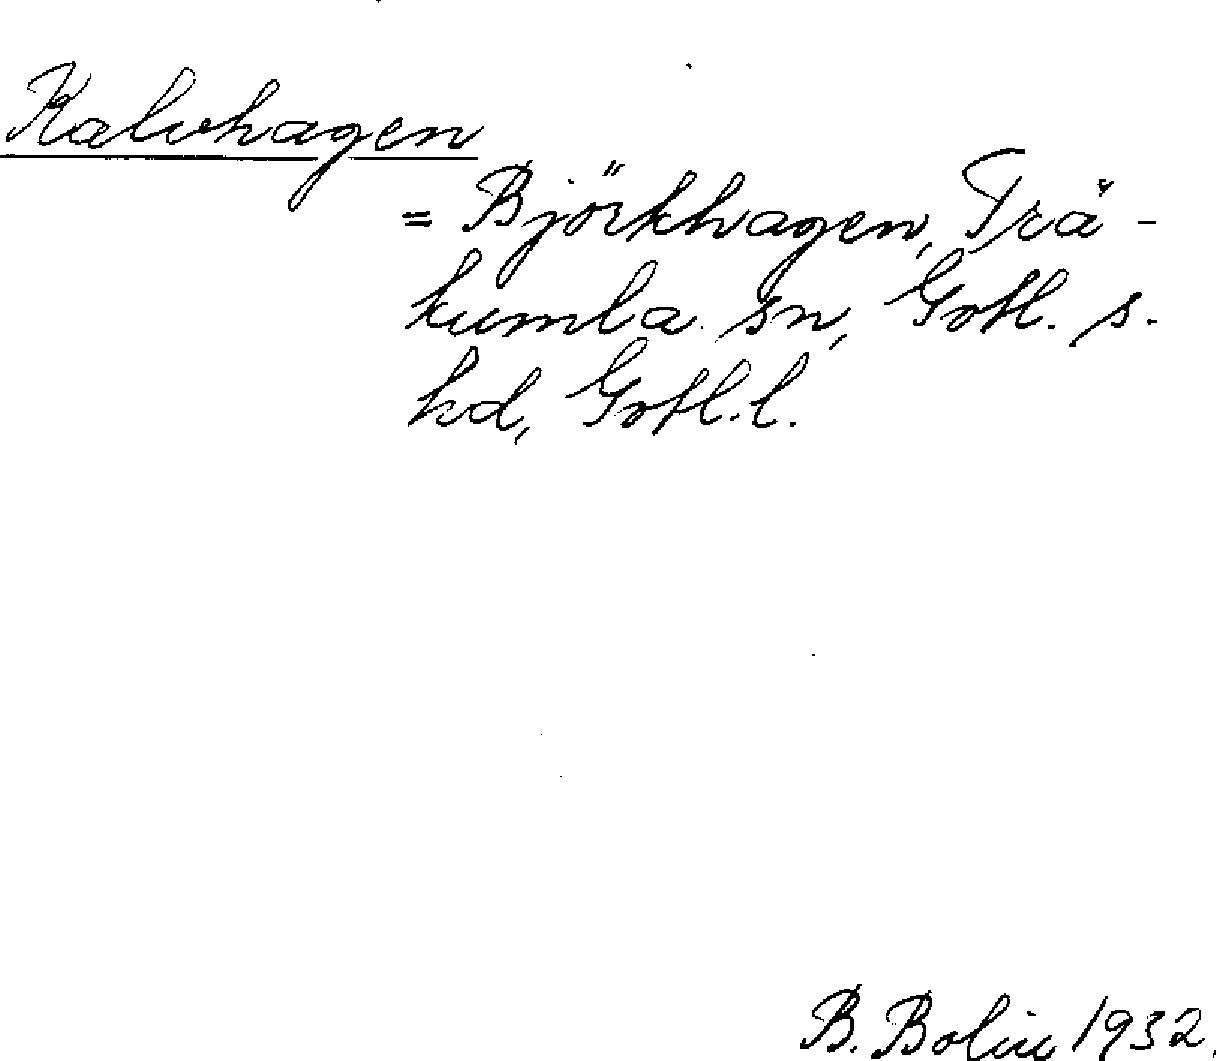 Kalvhagen
= Björkhagen, Trä-
kumla sn, Gotl. s.
hd, Gotl. l.
B. Bolin 1932.